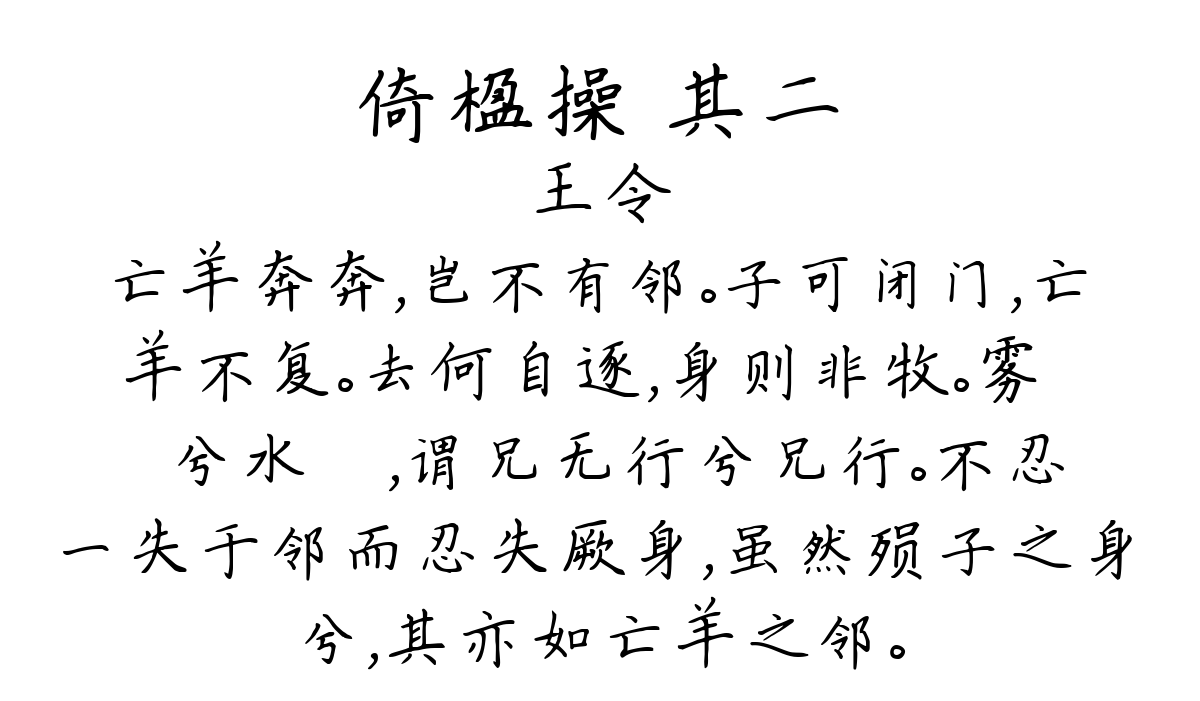 倚楹操 其二
王令
亡羊奔奔,岂不有邻。子可闭门,亡
羊不复。去何自逐,身则非牧。雾
兮水 ,谓兄无行兮兄行。不忍
一失于邻而忍失厥身,虽然殒子之身
兮,其亦如亡羊之邻。